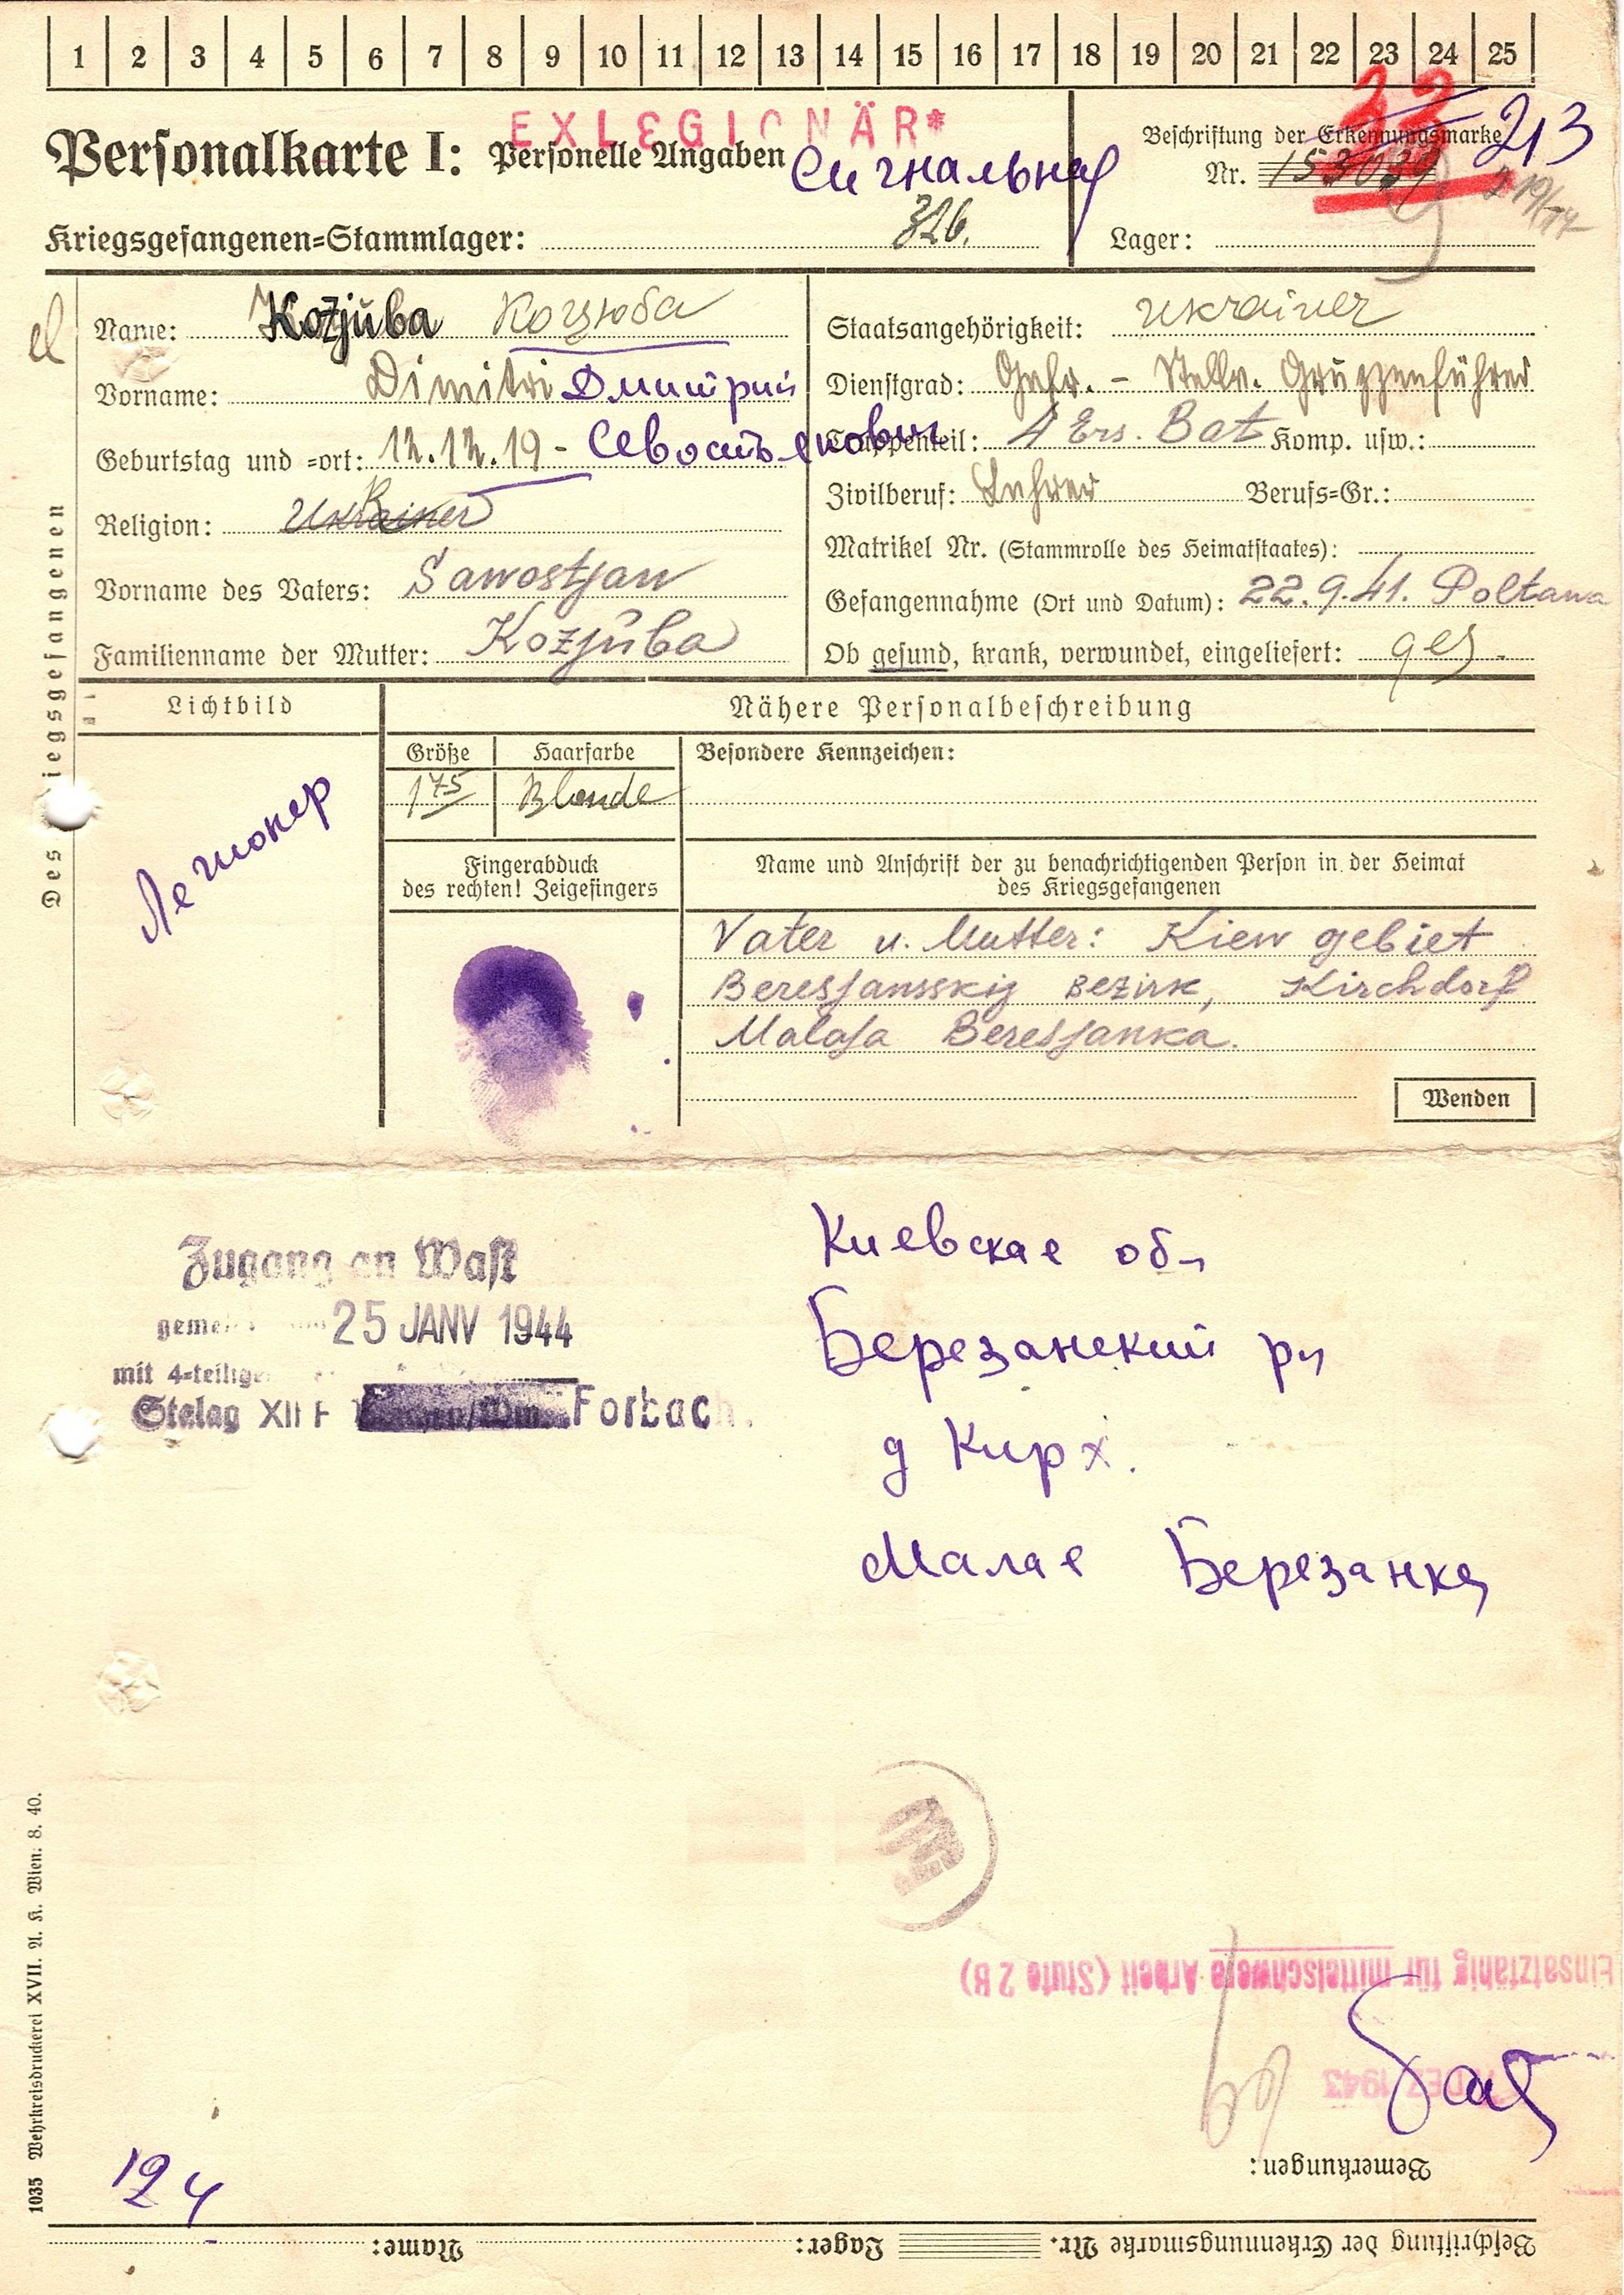 1 2 3 4 5 6 7 8 9 10 11 12 13 14 15 16 17 18 19 20 21 22 23 24 25
EXLEGIONÄR*
Personalkarte I: Personelle Angaben
Сигнальная
Beschriftung der Erkennungsmarke 213
Nr. 153039
Kriegsgefangenen=Stammlager: 326.
Lager:
Name: Kozjuba Козюба
Vorname: Dimitri Дмитрий
Geburtstag und =ort: 12.12.19 - Севостьянович
Religion: Ukrainer
Vorname des Vaters: Sawostjan
Familienname der Mutter: Kozjuba
Staatsangehörigkeit: Ukrainer
Dienstgrad: Gefr. - Stellv. Gruppenführer
Truppenteil: 4 Ers. Bat Komp. usw.:
Zivilberuf: Lehrer Berufs=Gr.:
Matrikel Nr. (Stammrolle des Heimatstaates):
Gefangennahme (Ort und Datum): 22.9.41. Poltawa
Ob gesund, krank, verwundet, eingeliefert: ges.
Des iegsgefangenen
Lichtbild
Легионер
Nähere Personalbeschreibung
Größe Haarfarbe Besondere Kennzeichen:
175 Blonde
Fingerabduck
des rechten! Zeigefingers
Name und Anschrift der zu benachrichtigenden Person in der Heimat
des Kriegsgefangenen
Vater u. Mutter: Kiew gebiet
Beresjansskij Bezirk, Kirchdorf
Malaja Beresjanka.
Wenden
Zugang an Wast
25 JANV 1944
mit 4=teilige
Stalag XII F Forbach.
Киевская об
Березанский р
д Кирх.
Малая Березанка
Einsatzfähig für mittelschwere Arbeit (Stufe 2 B)
DEZ 1943
Bemerkungen:
124
1035 Wehrkreisdruckerei XVII. A. K. Wien. 8. 40.
Beschriftung der Erkennungsmarke Nr. Lager: Name: